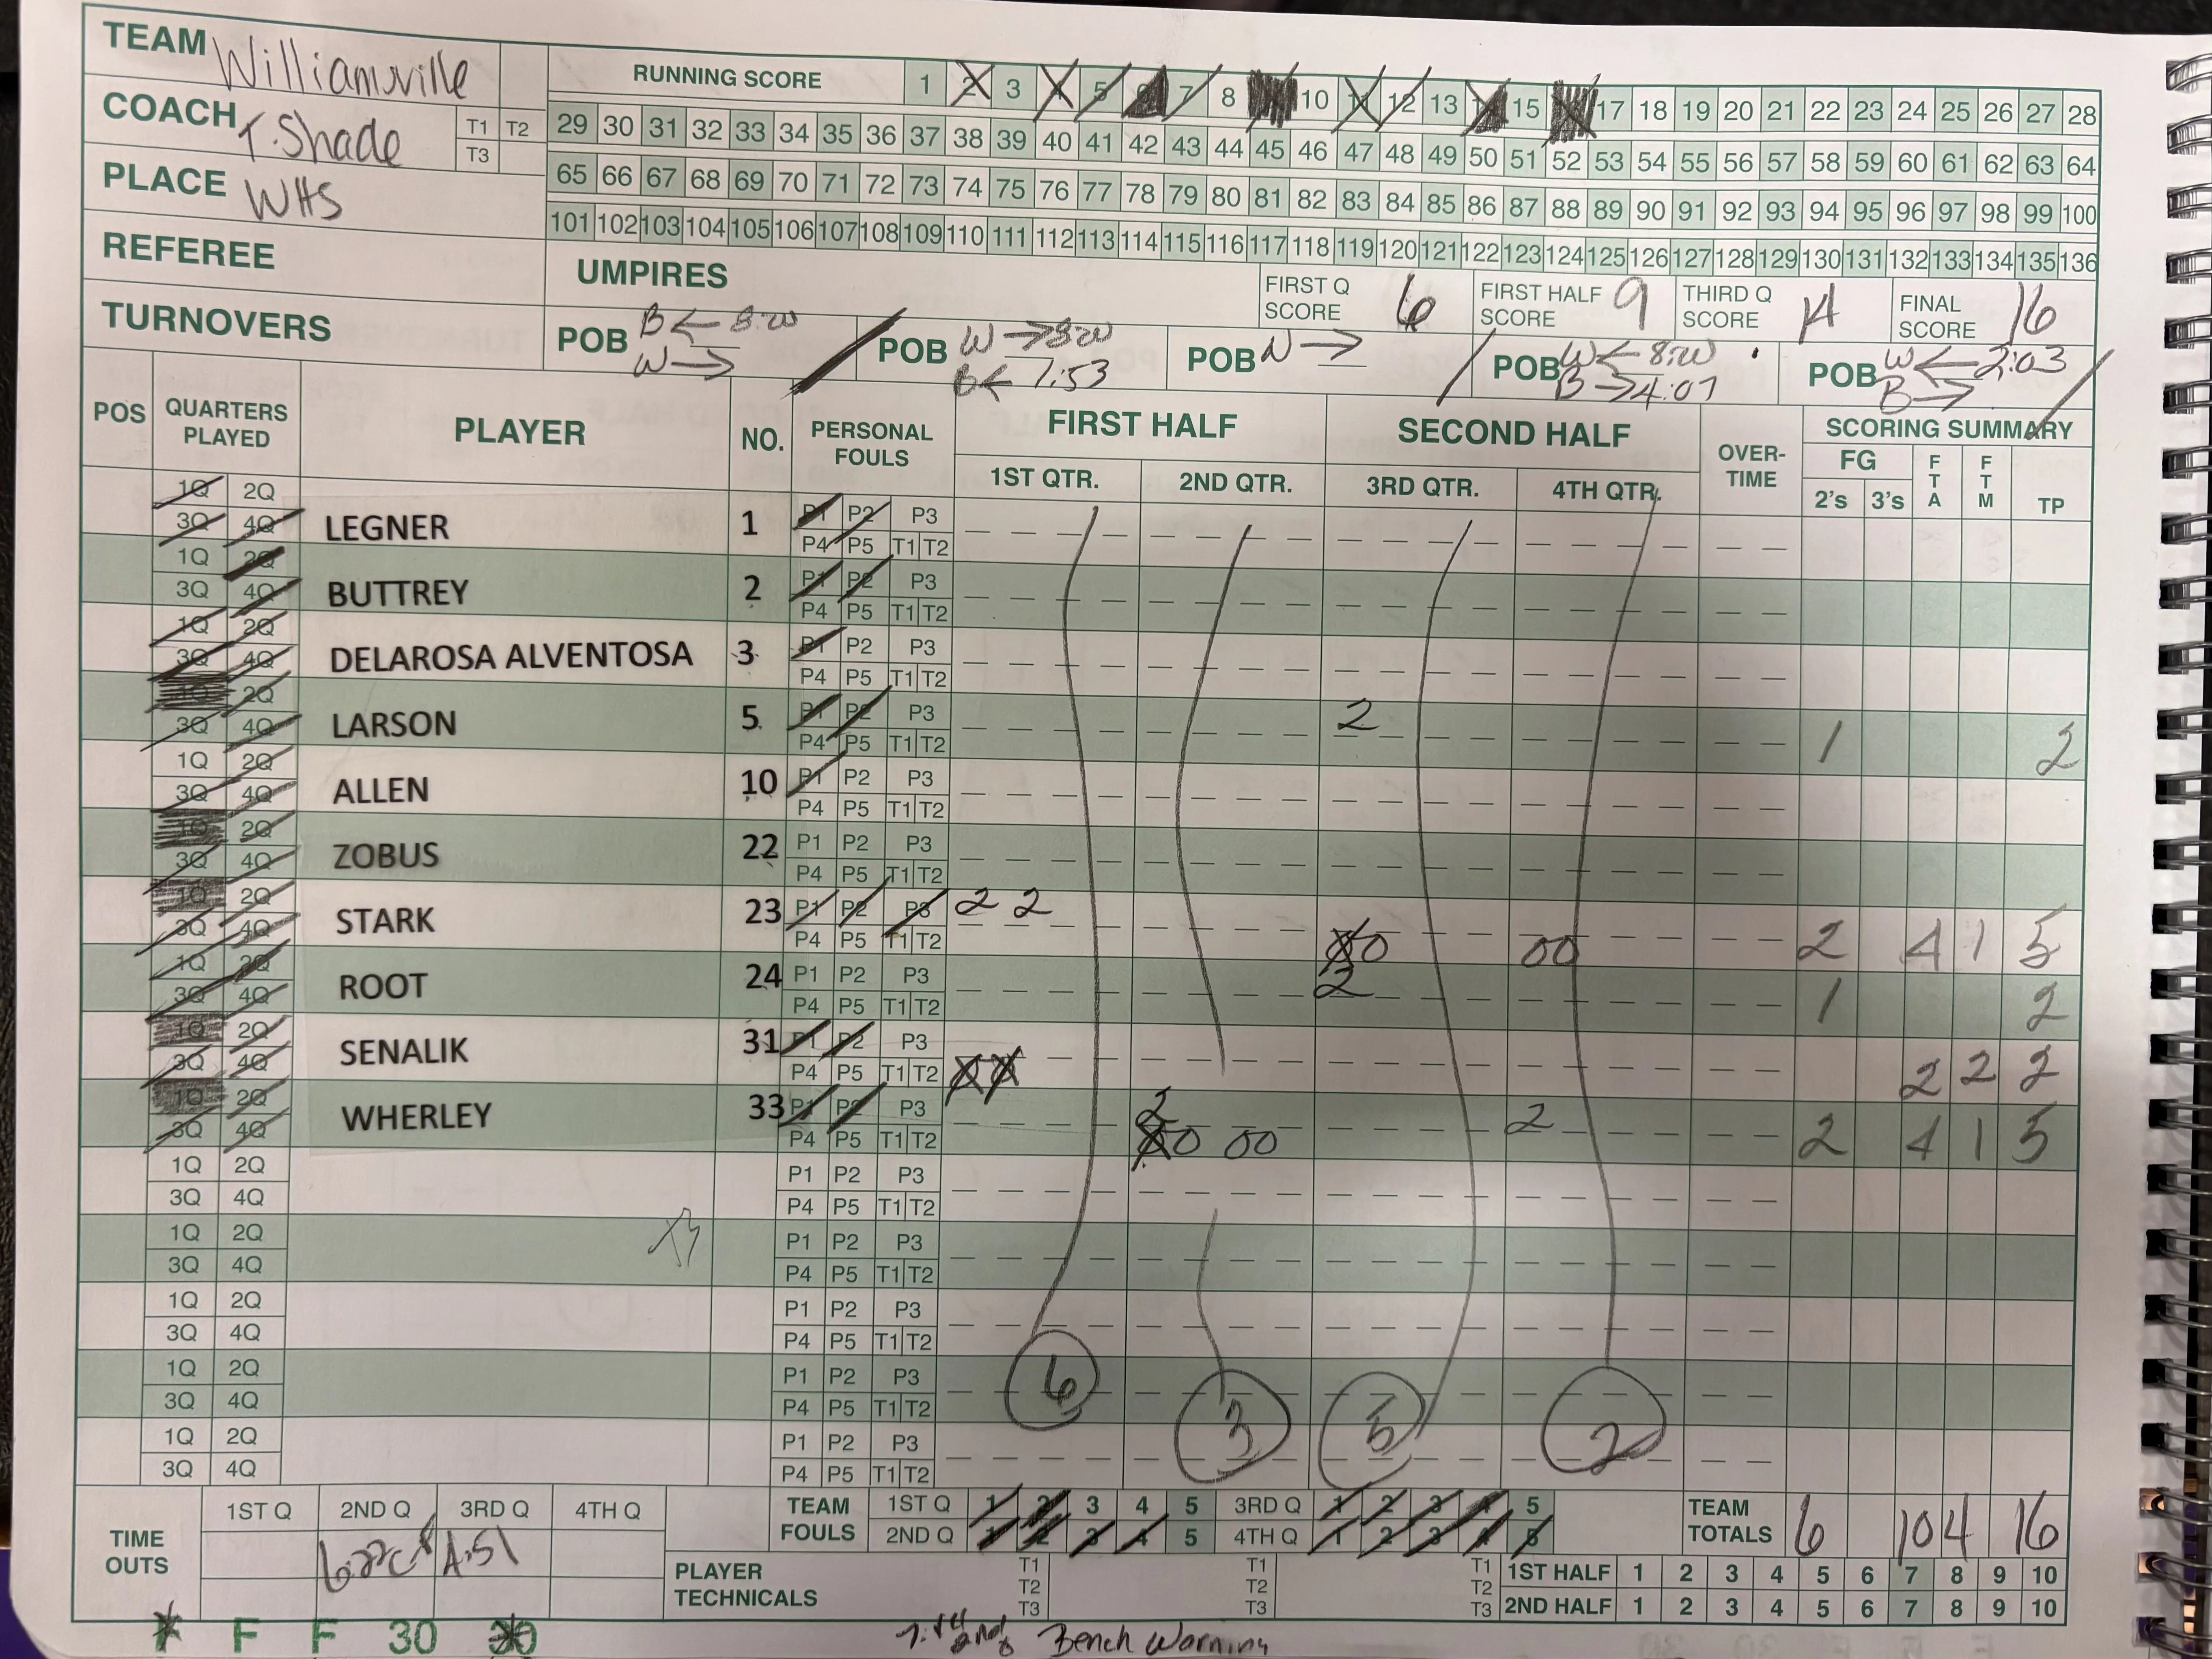 TEAM Williamsville
RUNNING SCORE 1 2 3 4 5 6 7 8 10 11 12 13 14 15 17 18 19 20 21 22 23 24 25 26 27 28
COACH T. Shade T1 T2 T3
29 30 31 32 33 34 35 36 37 38 39 40 41 42 43 44 45 46 47 48 49 50 51 52 53 54 55 56 57 58 59 60 61 62 63 64
PLACE WHS
65 66 67 68 69 70 71 72 73 74 75 76 77 78 79 80 81 82 83 84 85 86 87 88 89 90 91 92 93 94 95 96 97 98 99 100
101 102 103 104 105 106 107 108 109 110 111 112 113 114 115 116 117 118 119 120 121 122 123 124 125 126 127 128 129 130 131 132 133 134 135 136
REFEREE
UMPIRES
FIRST Q SCORE 6
FIRST HALF SCORE 9
THIRD Q SCORE 14
FINAL SCORE 16
TURNOVERS
POB B ← 8:00
W →
POB W → 8:00
B ← 7:53
POB N →
POB W ← 8:00
B → 4:07
POB W ← 2:03
B →
POS QUARTERS PLAYED PLAYER NO. PERSONAL FOULS FIRST HALF SECOND HALF OVER-TIME SCORING SUMMARY
1ST QTR. 2ND QTR. 3RD QTR. 4TH QTR. FG 2's 3's FTA FTM TP
1Q 2Q P1 P2 P3
3Q 4Q LEGNER 1 P4 P5 T1 T2
1Q 2Q P1 P2 P3
3Q 4Q BUTTREY 2 P4 P5 T1 T2
1Q 2Q P1 P2 P3
3Q 4Q DELAROSA ALVENTOSA 3 P4 P5 T1 T2
2Q P1 P2 P3 2
3Q 4Q LARSON 5 P4 P5 T1 T2 1 2
1Q 2Q P1 P2 P3
3Q 4Q ALLEN 10 P4 P5 T1 T2
1Q 2Q P1 P2 P3
3Q 4Q ZOBUS 22 P4 P5 T1 T2
1Q 2Q P1 P2 P3 2 2
3Q 4Q STARK 23 P4 P5 T1 T2 0 00 2 4 1 5
1Q 2Q P1 P2 P3 2
3Q 4Q ROOT 24 P4 P5 T1 T2 1 2
1Q 2Q P1 P2 P3
3Q 4Q SENALIK 31 P4 P5 T1 T2 2 2 2
1Q 2Q P1 P2 P3 2 2
3Q 4Q WHERLEY 33 P4 P5 T1 T2 0 00 2 4 1 5
1Q 2Q P1 P2 P3
3Q 4Q P4 P5 T1 T2
1Q 2Q P1 P2 P3
3Q 4Q P4 P5 T1 T2
1Q 2Q P1 P2 P3
3Q 4Q P4 P5 T1 T2
1Q 2Q P1 P2 P3
3Q 4Q P4 P5 T1 T2
1Q 2Q P1 P2 P3
3Q 4Q P4 P5 T1 T2
6 3 5 2
TIME OUTS 1ST Q 2ND Q 3RD Q 4TH Q
4:51
TEAM FOULS 1ST Q 1 2 3 4 5 3RD Q 1 2 3 4 5
2ND Q 1 2 3 4 5 4TH Q 1 2 3 4 5
TEAM TOTALS 6 10 4 16
PLAYER TECHNICALS T1 T2 T3 T1 T2 T3 T1 T2 T3
1ST HALF 1 2 3 4 5 6 7 8 9 10
2ND HALF 1 2 3 4 5 6 7 8 9 10
F F F 30 30
Bench Warning